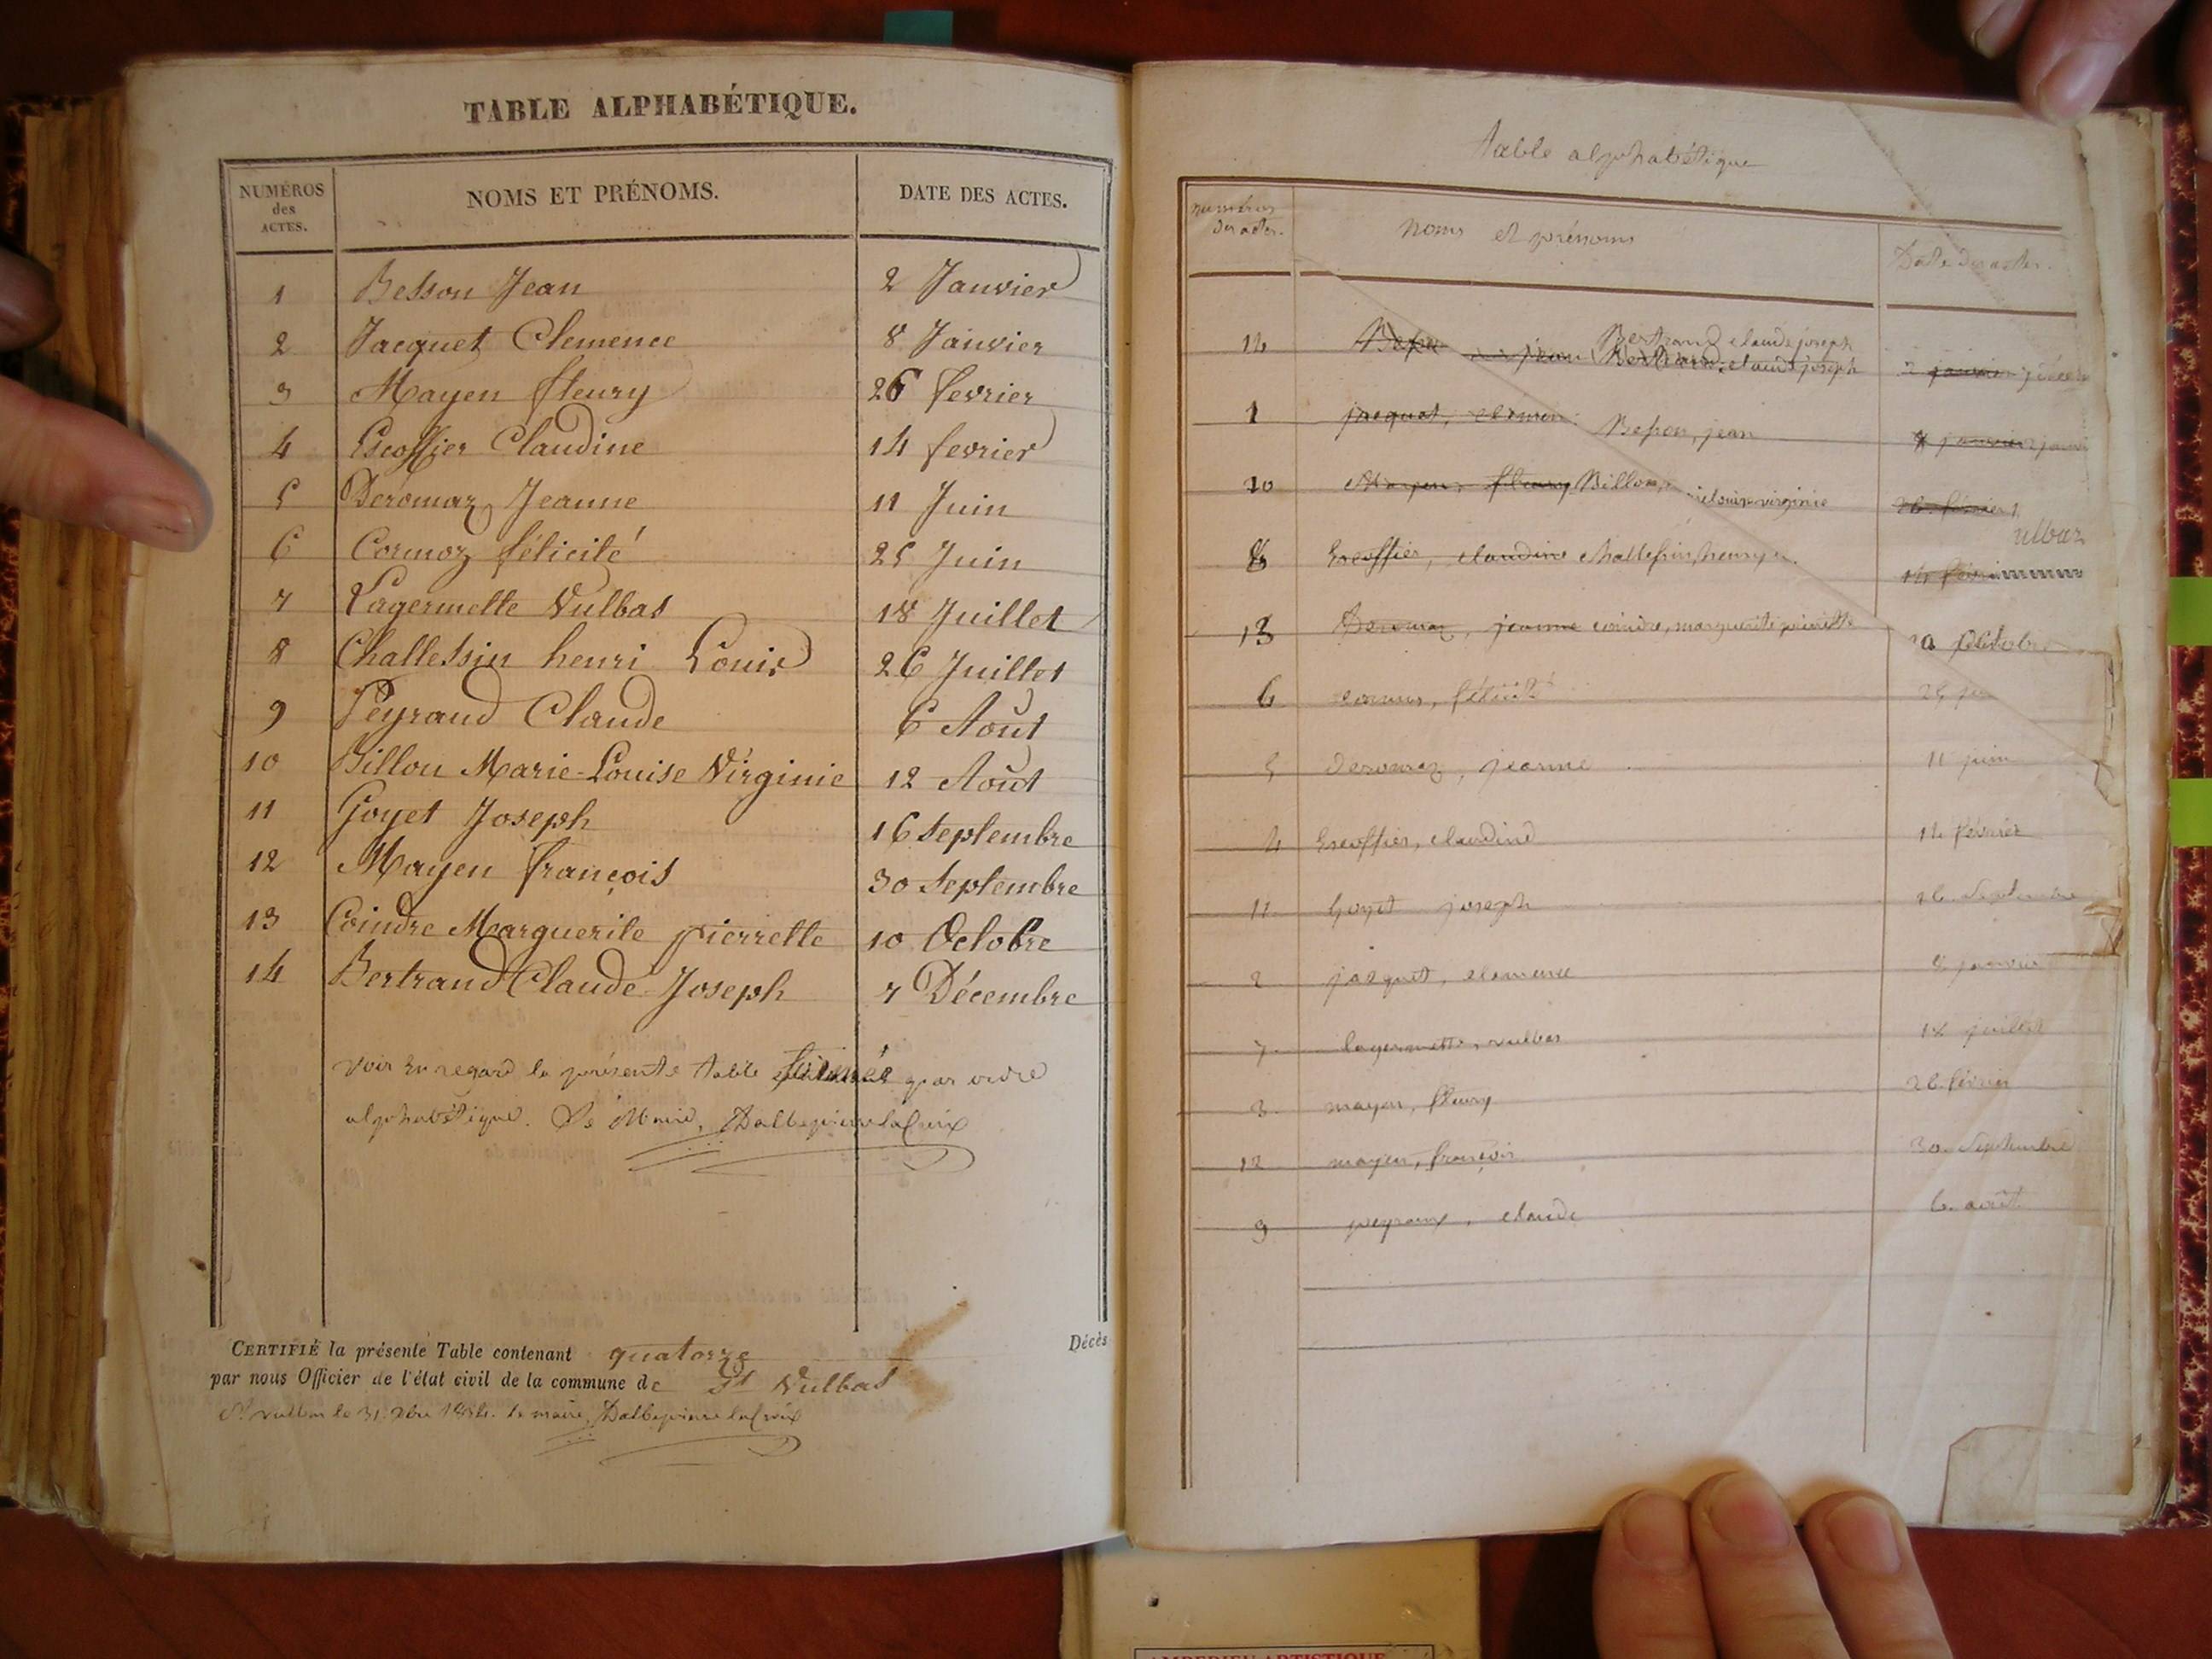 TABLE ALPHABÉTIQUE.
NUMÉROS des ACTES. NOMS ET PRÉNOMS. DATE DES ACTES.
1 Besson Jean 2 Janvier
2 Jacquet Clemence 8 Janvier
3 Mayen fleury 26 fevrier
4 Escoffier Claudine 14 fevrier
5 Deromaz Jeanne 11 Juin
6 Cormoz félicité 25 Juin
7 Lagermette Vulbas 18 Juillet
8 Challessin henri Louis 26 Juillet
9 Peyraud Claude 6 Août
10 Billon Marie-Louise Virginie 12 Août
11 Goyet Joseph 16 Septembre
12 Mayen françois 30 Septembre
13 Coindre Marguerite pierrette 10 Octobre
14 Bertrand Claude Joseph 7 Décembre
Voir en regard la présente table formée par ordre
alphabétique. Le Maire,
CERTIFIÉ la présente Table contenant quatorze
par nous Officier de l'état civil de la commune de St Vulbas
St vulbas le 31 le maire,
Décès
table alphabétique
numéros des actes. Noms et prénoms Date des actes.
14 Bertrand claude joseph
Bertrand, claude joseph 2 janvier
1 jacquet, Besson, jean 8 janvier
10 Mayen, fleury Billon, louise virginie 26 février
ulbas
8 Escoffier, claudine challessin, henry 14
13 Deromaz, jeanne coindre, marguerite pierrette 10 Octobre
6 félicité 25
5 Deromaz, jeanne 11 juin
4 Escoffier, claudine 14 février
11 Goyet joseph 16 Septembre
2 jacquet, clemence 8 janvier
7 lagermette, vulbas 18 juillet
3 mayen, fleury 26 février
12 mayen, françois 30 Septembre
9 claude 6 août
AMBERIEU ARTISTIQUE